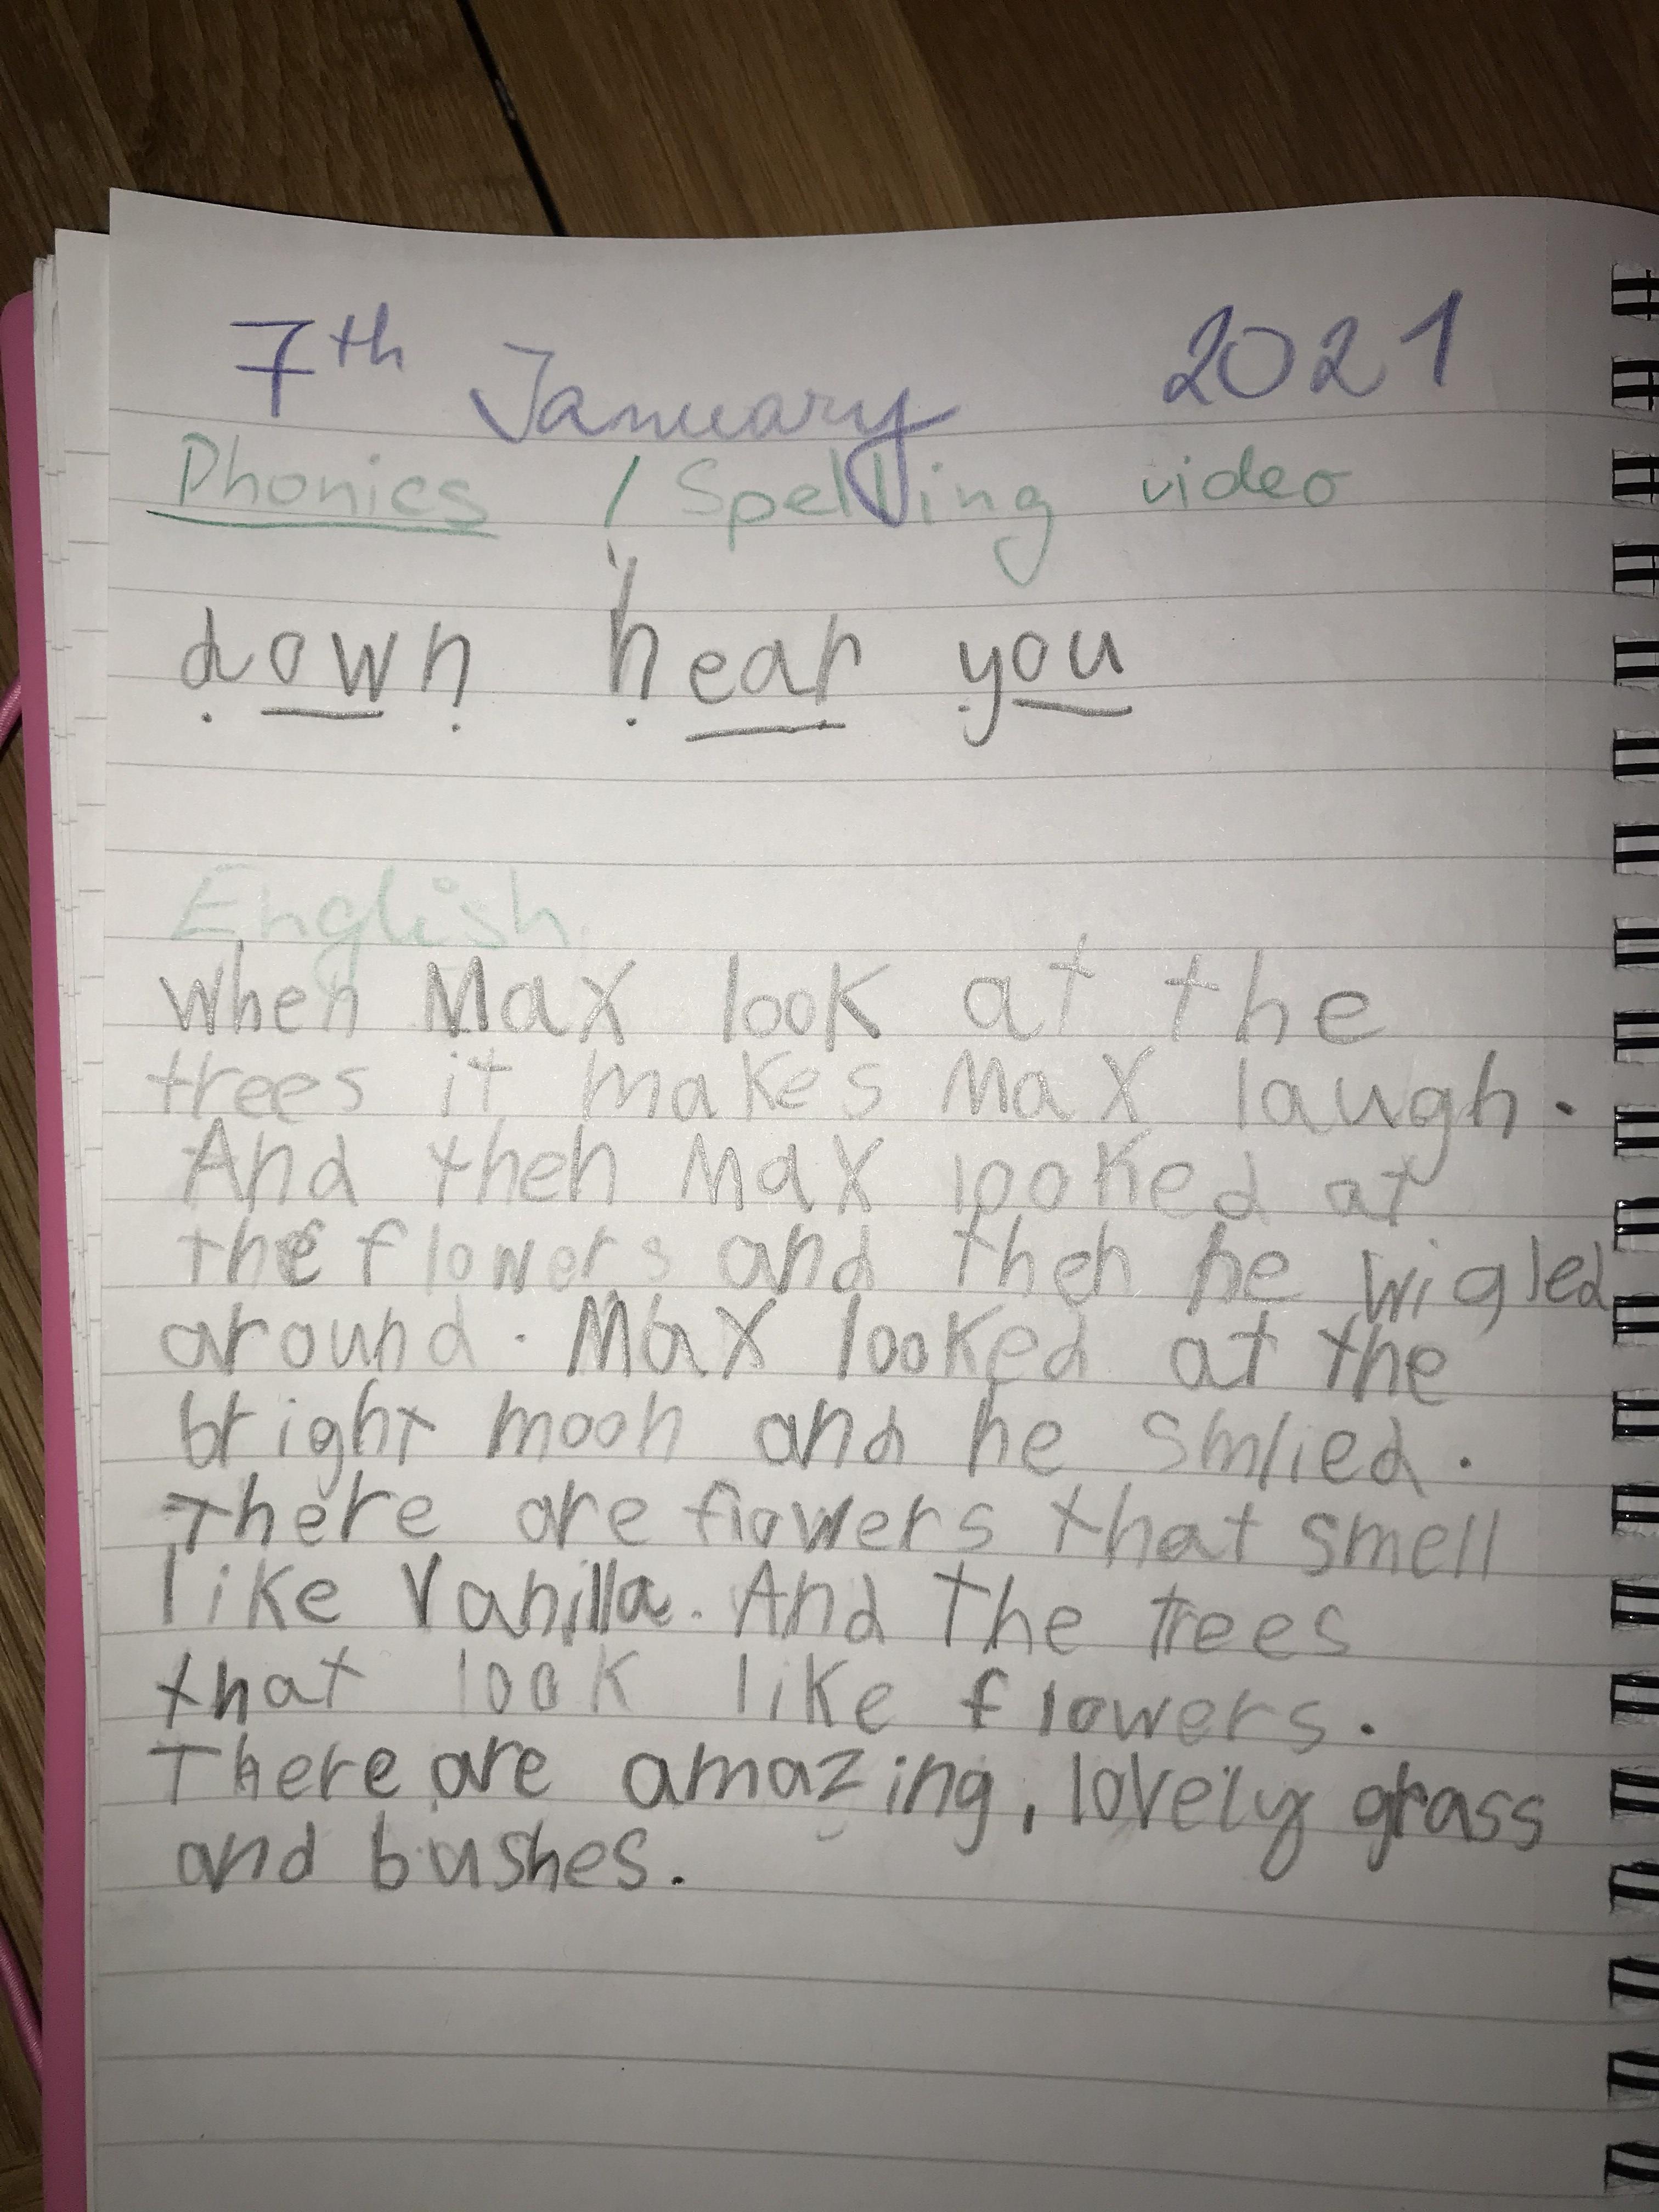 7th January 2021
Phonics / Spelling video
down hear you
English
When Max look at the
trees it makes Max laugh.
And then Max looked at
the flowers and then he wigled
around. Max looked at the
bright moon and he smlied.
There are flowers that smell
like Vanilla. And the trees
that look like flowers.
There are amazing, lovely grass
and bushes.